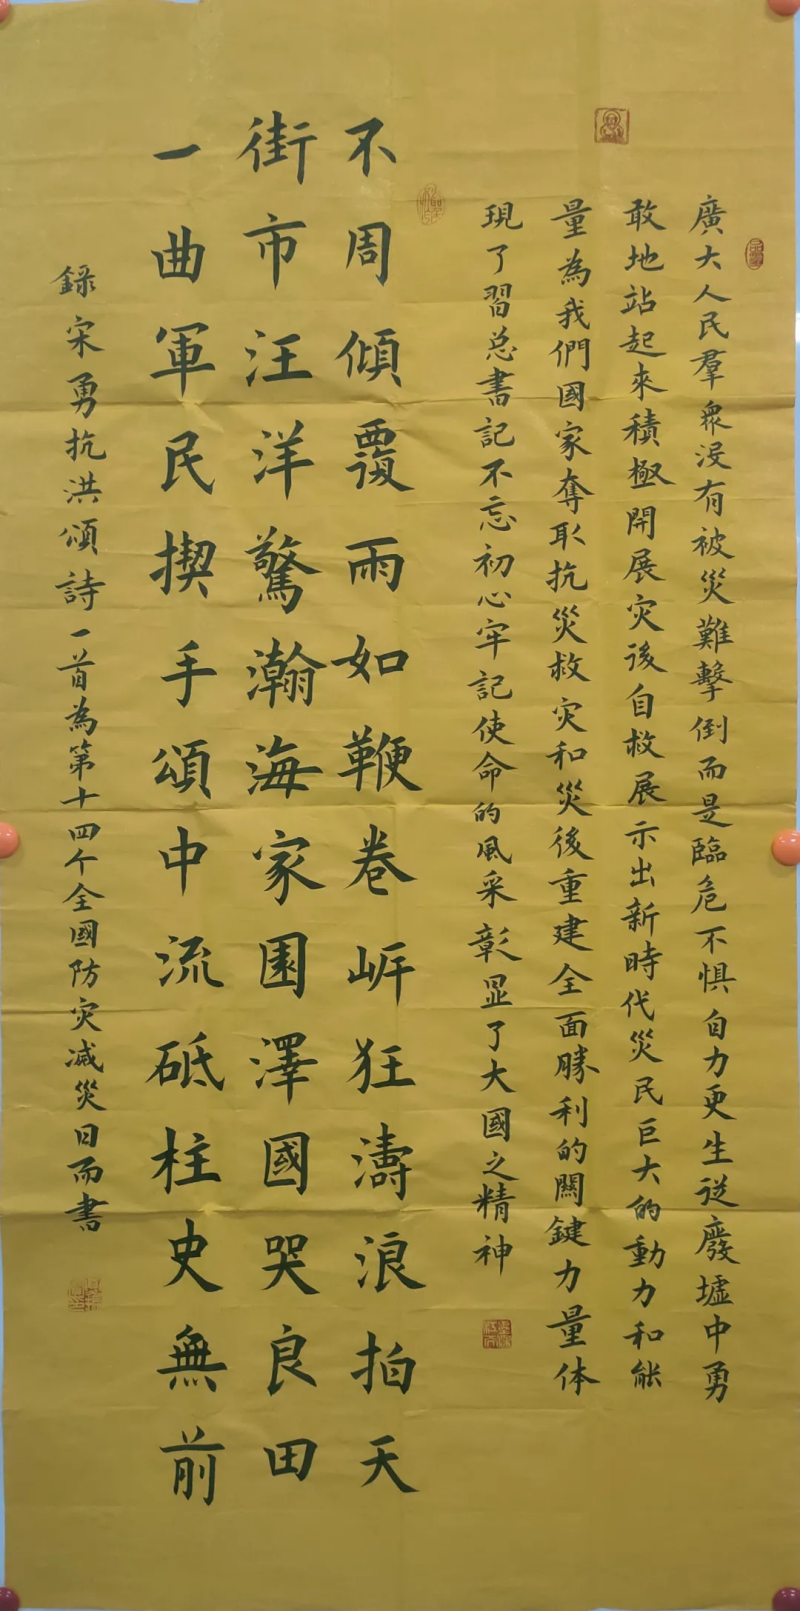 廣大人民羣衆没有被災難擊倒而是臨危不惧自力更生從廢墟中勇
敢地站起來積極開展灾後自救展示出新時代災民巨大的動力和能
量為我們國家奪取抗災救灾和災後重建全面勝利的關鍵力量体
現了習总書記不忘初心牢記使命的風采彰显了大國之精神
不周傾覆雨如鞭卷岍狂濤浪拍天
街市汪洋驚瀚海家園澤國哭良田
一曲軍民揳手頌中流砥柱史無前
錄宋勇抗洪頌詩一首為第十四个全國防灾减災日而書